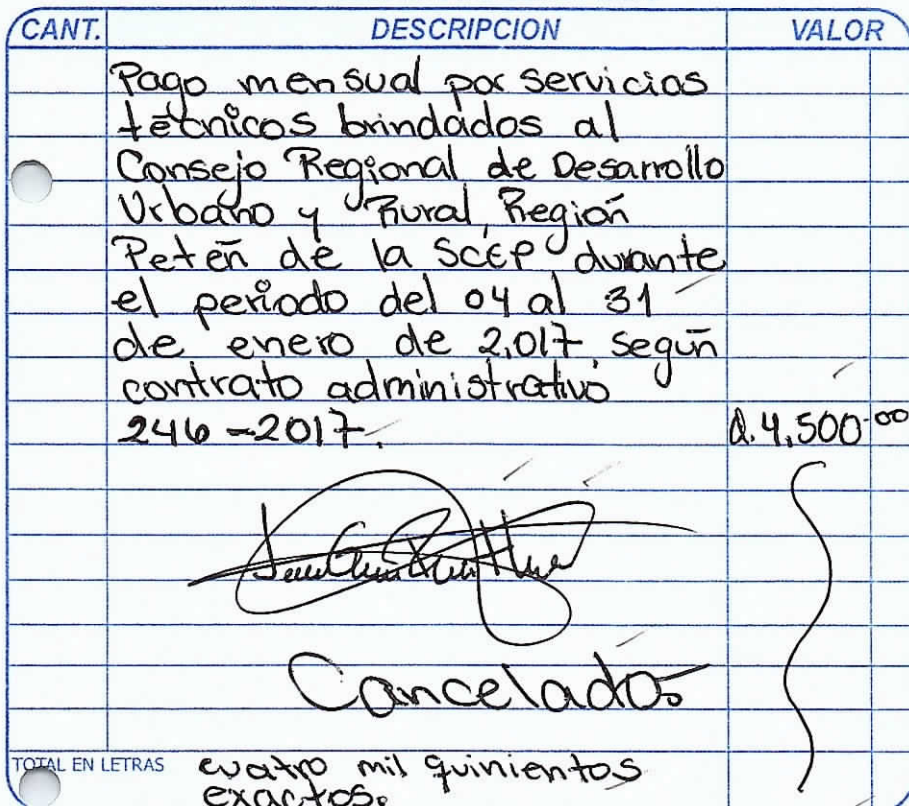 CANT. DESCRIPCION VALOR
Pago mensual por servicios
técnicos brindados al
Consejo Regional de Desarrollo
Urbano y Rural, Región
Petén de la SCEP durante
el período del 04 al 31
de enero de 2,017 según
contrato administrativo
246-2017. Q.4,500.00
Cancelado.
TOTAL EN LETRAS cuatro mil quinientos
exactos.